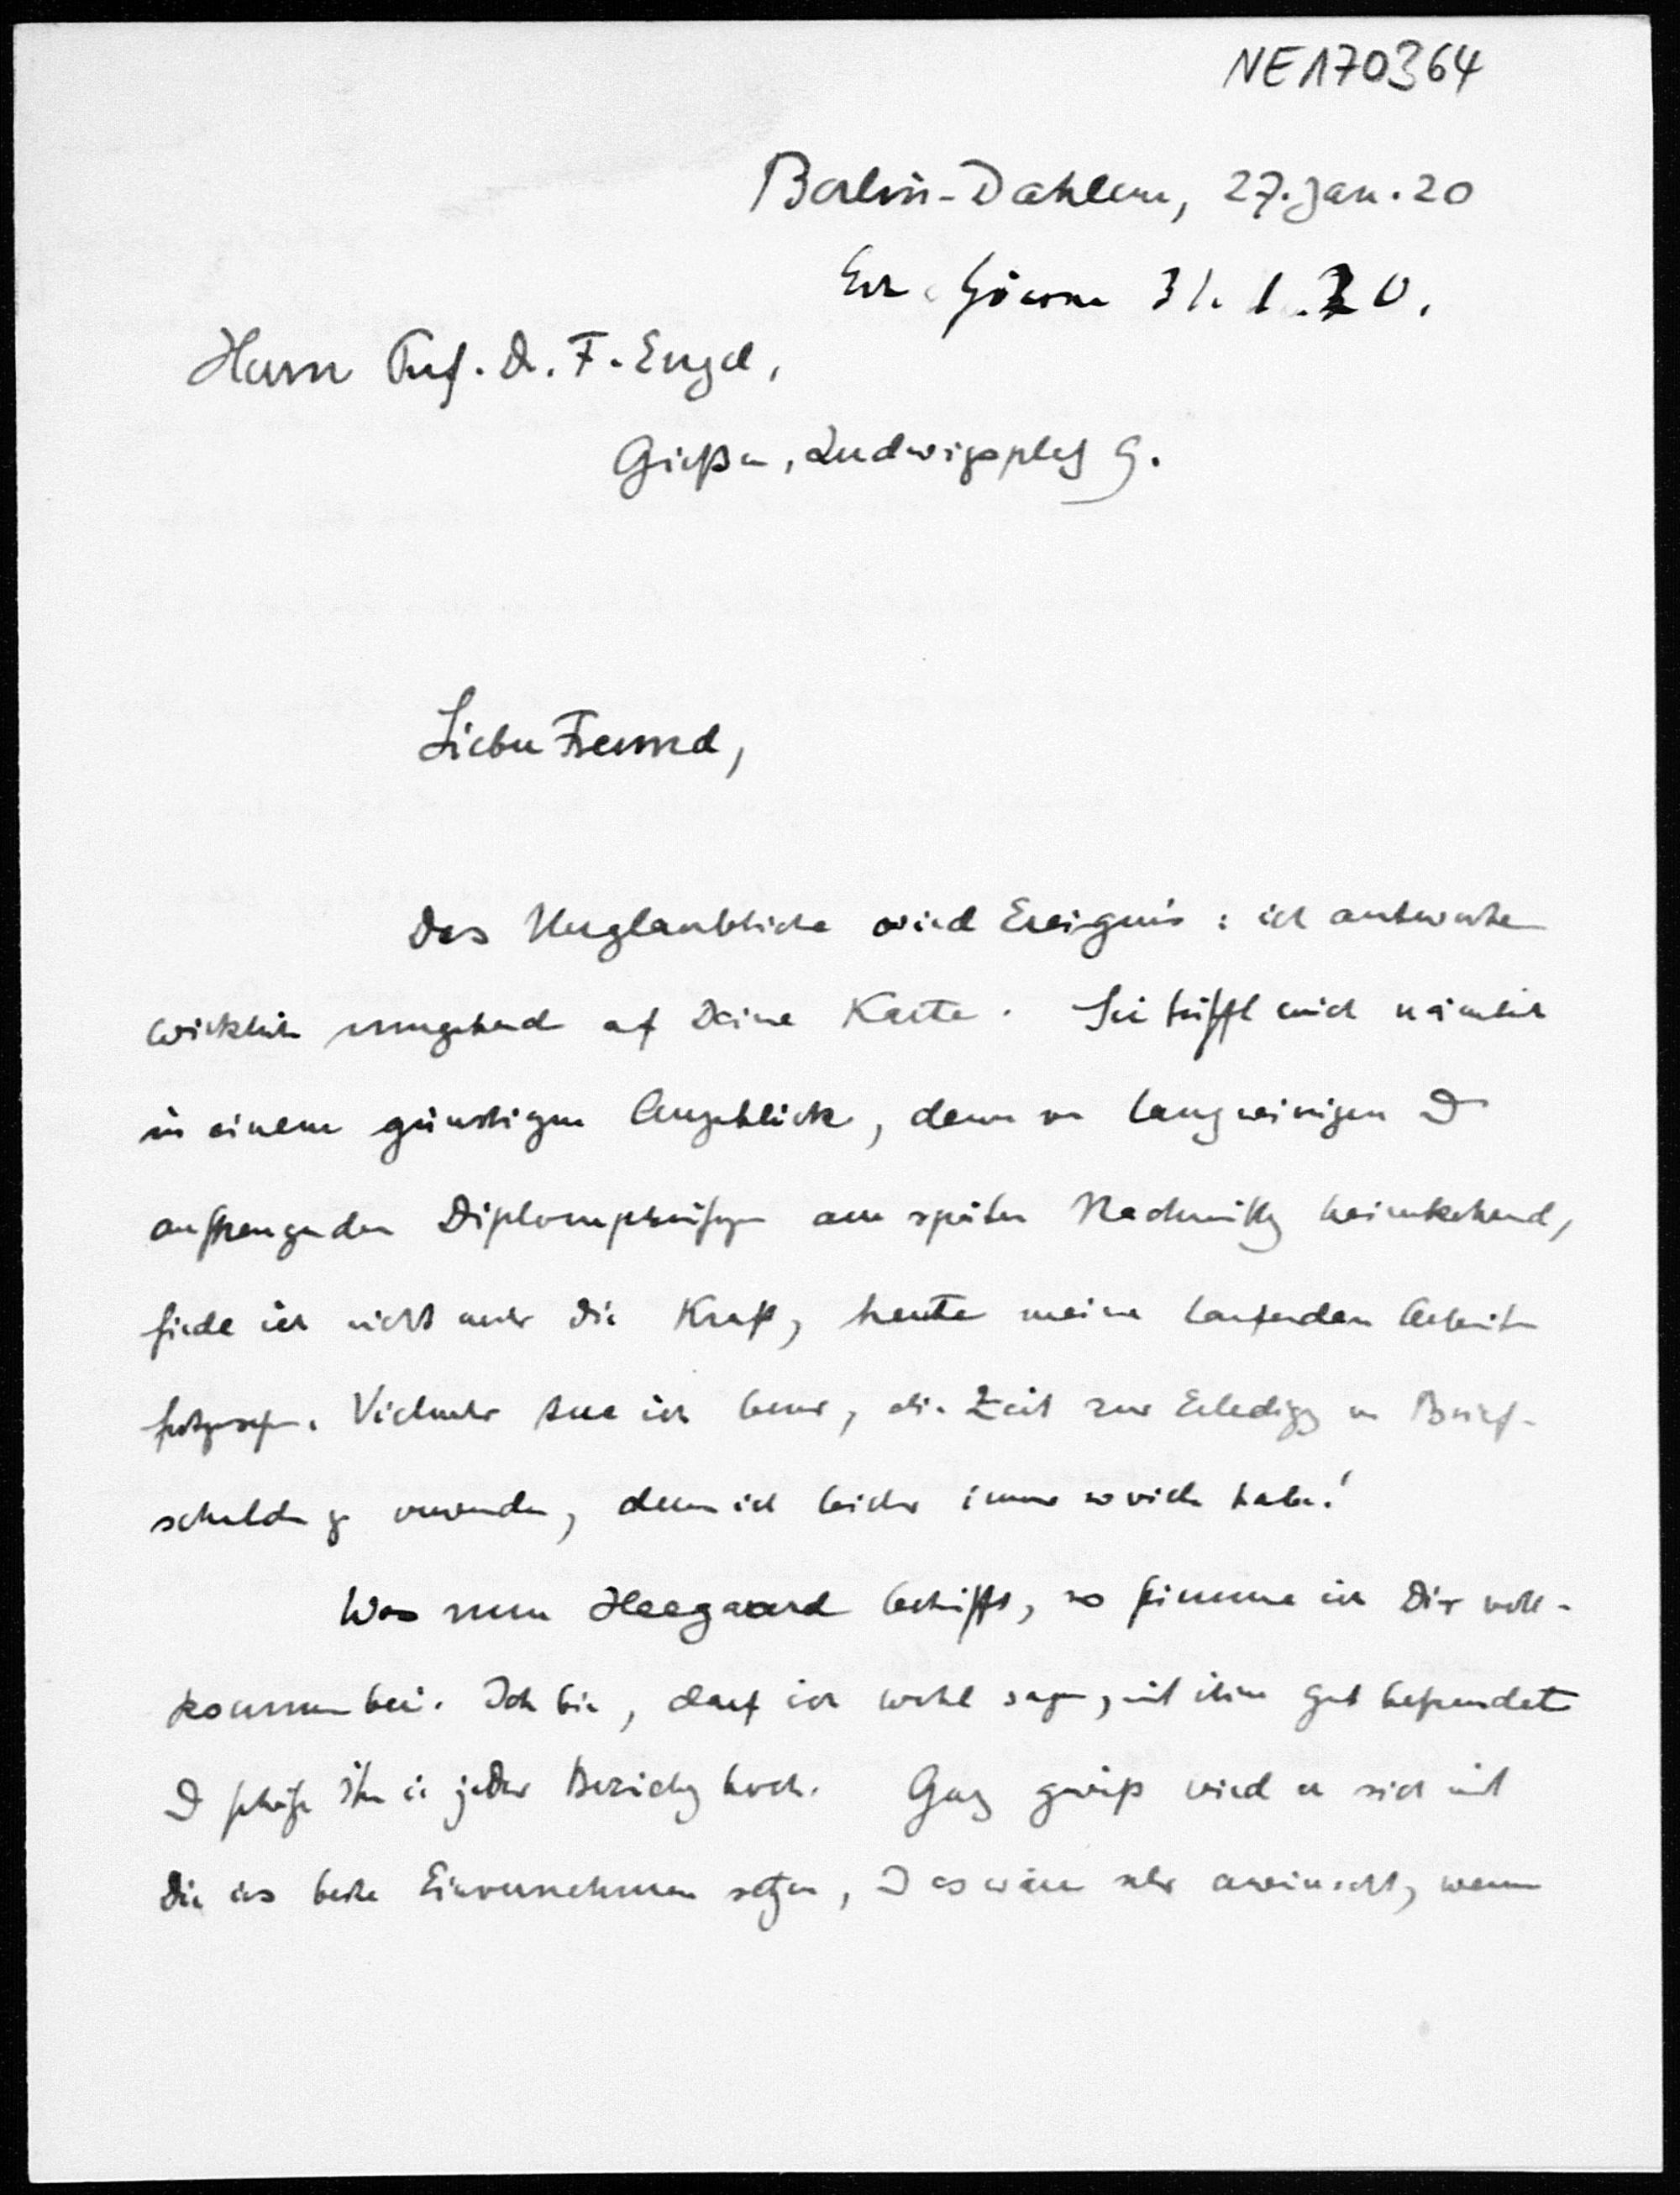 NE170364
Berlin-Dahlem, 27. Jan. 20
31. 1. 20.
Herrn Prof. Dr. F. Engel,
Gießen, Ludwigsplatz 9.
Lieber Freund,
Das Unglaubliche wird Ereignis: ich antworte
wirklich umgehend auf Deine Karte. Sie trifft mich nämlich
in einem günstigen Augenblick, denn von langweiligen u
anstrengenden Diplomprüfungen am späten Nachmittag heimkehrend,
finde ich nicht mehr die Kraft, heute meine laufenden Arbeiten
fortzusetzen. Vielmehr tue ich besser, die Zeit zur Erledigg von Brief-
schulden zu verwenden, deren ich leider immer so viele habe!
Was nun Heegaard betrifft, so stimme ich Dir voll-
kommen bei. Ich bin, darf ich wohl sagen, mit ihm gut befreundet
u schätze ihn in jeder Beziehg hoch. Ganz gewiß wird er sich mit
Dir ins beste Einvernehmen setzen, u es wäre sehr erwünscht, wenn